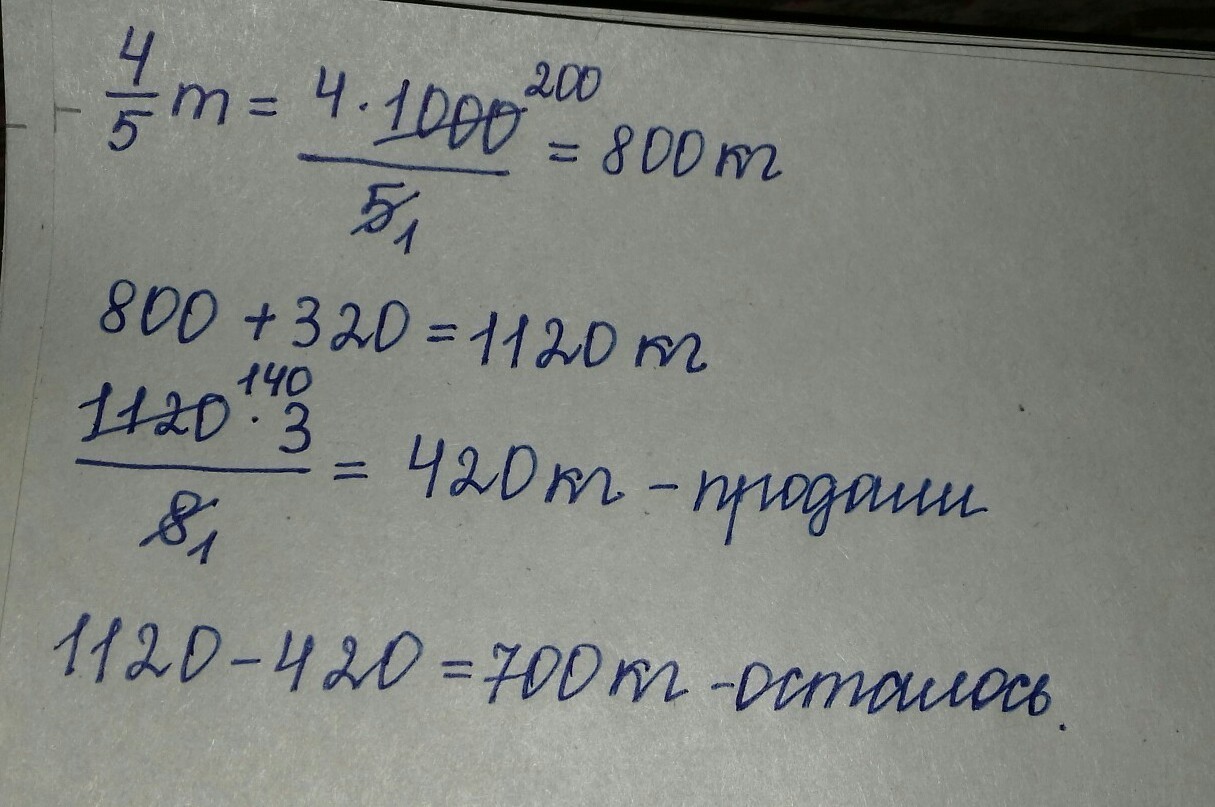 4/5 т = 4 · 1000 200 / 5 1 = 800 кг
800 + 320 = 1120 кг
1120 140 · 3 / 8 1 = 420 кг – продали
1120 – 420 = 700 кг – осталось.